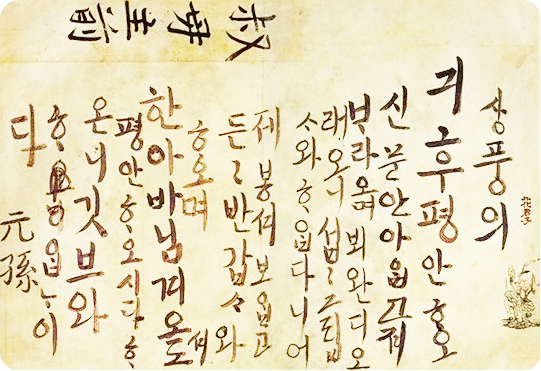 叔母主前
상풍의
긔후 평안ᄒᆞ오
신 문안 아ᄋᆞᆸ고져
ᄇᆞ라오며 뵈완디 오
래오니 섭섭 그립
ᄉᆞ와 ᄒᆞᄋᆞᆸ다니 어
제 봉셔 보ᄋᆞᆸ고
든든 반갑ᄉᆞ와
ᄒᆞ오며
한아바님겨오셔도
평안ᄒᆞ오시다 ᄒᆞ
온니 깃브와
ᄒᆞᄋᆞᆸᄂᆞ이
다
元孫